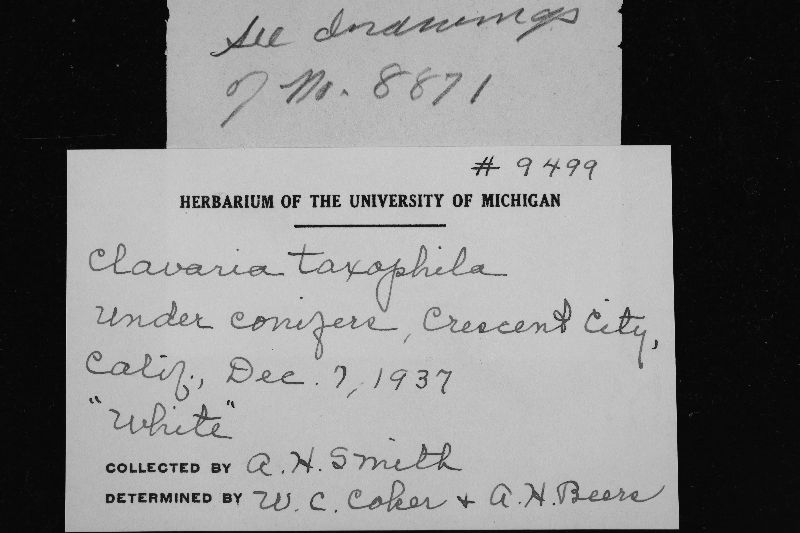 See drawings
of No. 8871
# 9499
HERBARIUM OF THE UNIVERSITY OF MICHIGAN
Clavaria taxophila
Under conifers, Crescent City,
Calif., Dec. 7, 1937
"White"
COLLECTED BY A. H. Smith
DETERMINED BY W. C. Coker + A. H. Beers